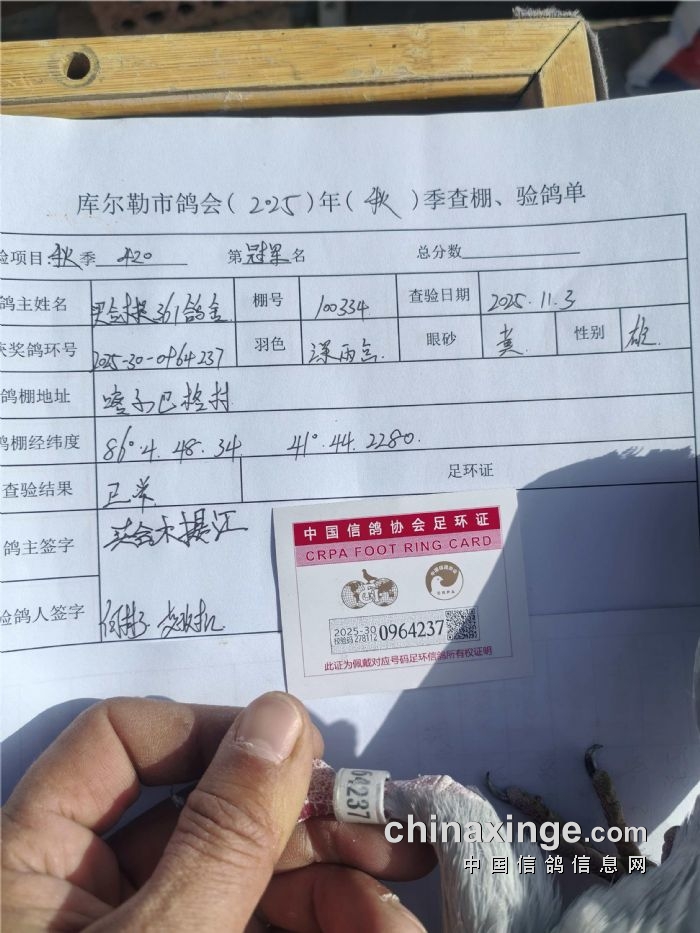 库尔勒市鸽会(2025)年(秋)季查棚、验鸽单
验项目:秋季 420 第冠军名 总分数
鸽主姓名 361鸽舍 棚号 100334 查验日期 2025.11.3
获奖鸽环号 2025-30-0964237 羽色 深雨点 眼砂 黄 性别 雄
鸽棚地址 巴格村
鸽棚经纬度 86°.4.48.34 41°.44.2280.
查验结果 正常 足环证
鸽主签字
验鸽人签字
中国信鸽协会足环证
CRPA FOOT RING CARD
2025-30 0964237
校验码 278112
此证为佩戴对应号码足环信鸽所有权证明
64237
chinaxinge.com
中国信鸽信息网